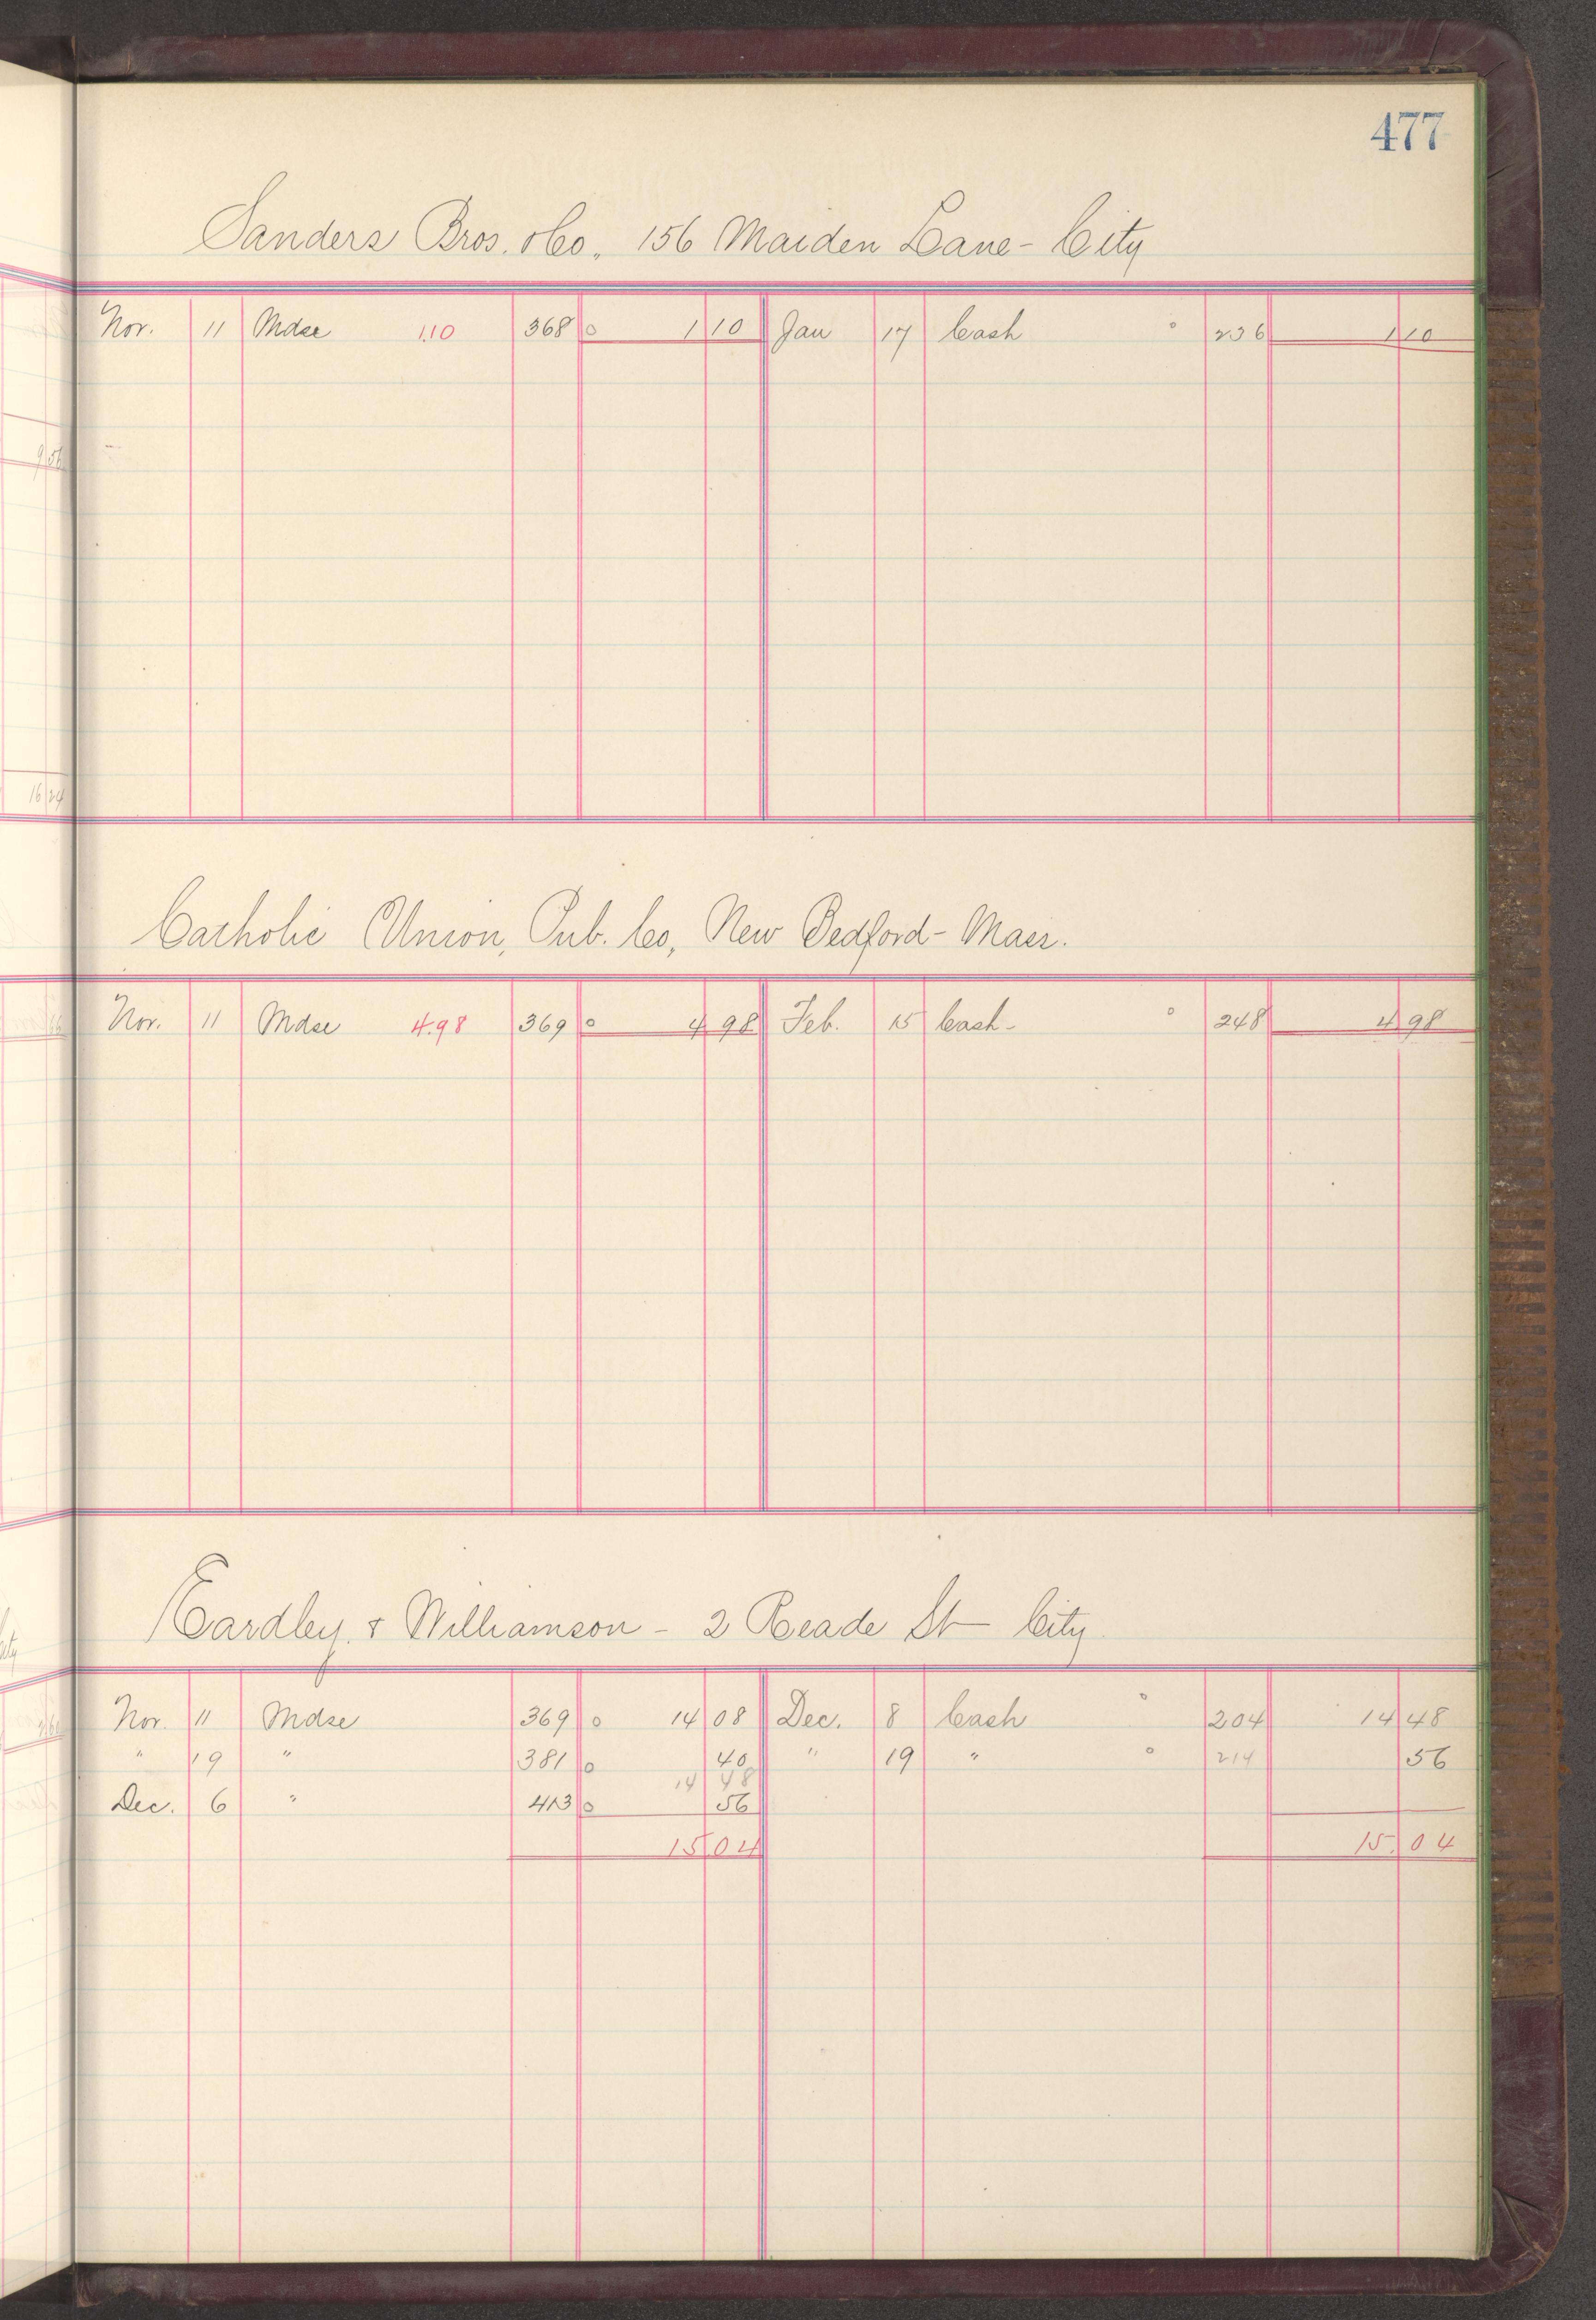 477
Sanders Bros. & Co., 156 Maiden Lane - City
Nor. 11 Mdse 1.10 368 o 1 10 Jan 17 Cash o 236 1 10
Catholic Union, Pub. Co, New Bedford - Mass.
Nov. 11 Mdse 4.98 369 o 4 98 Feb. 15 Cash - o 248 4 98
Eardley & Williamson - 2 Reade St - City
Nov. 11 Mdse 369 o 14 08 Dec. 8 Cash o 204 14 48
" 19 " 381 o 40 " 19 " o 214 56
14 48
Dec. 6 " 413 o 56
15 04 15. 04
9 56
16 24